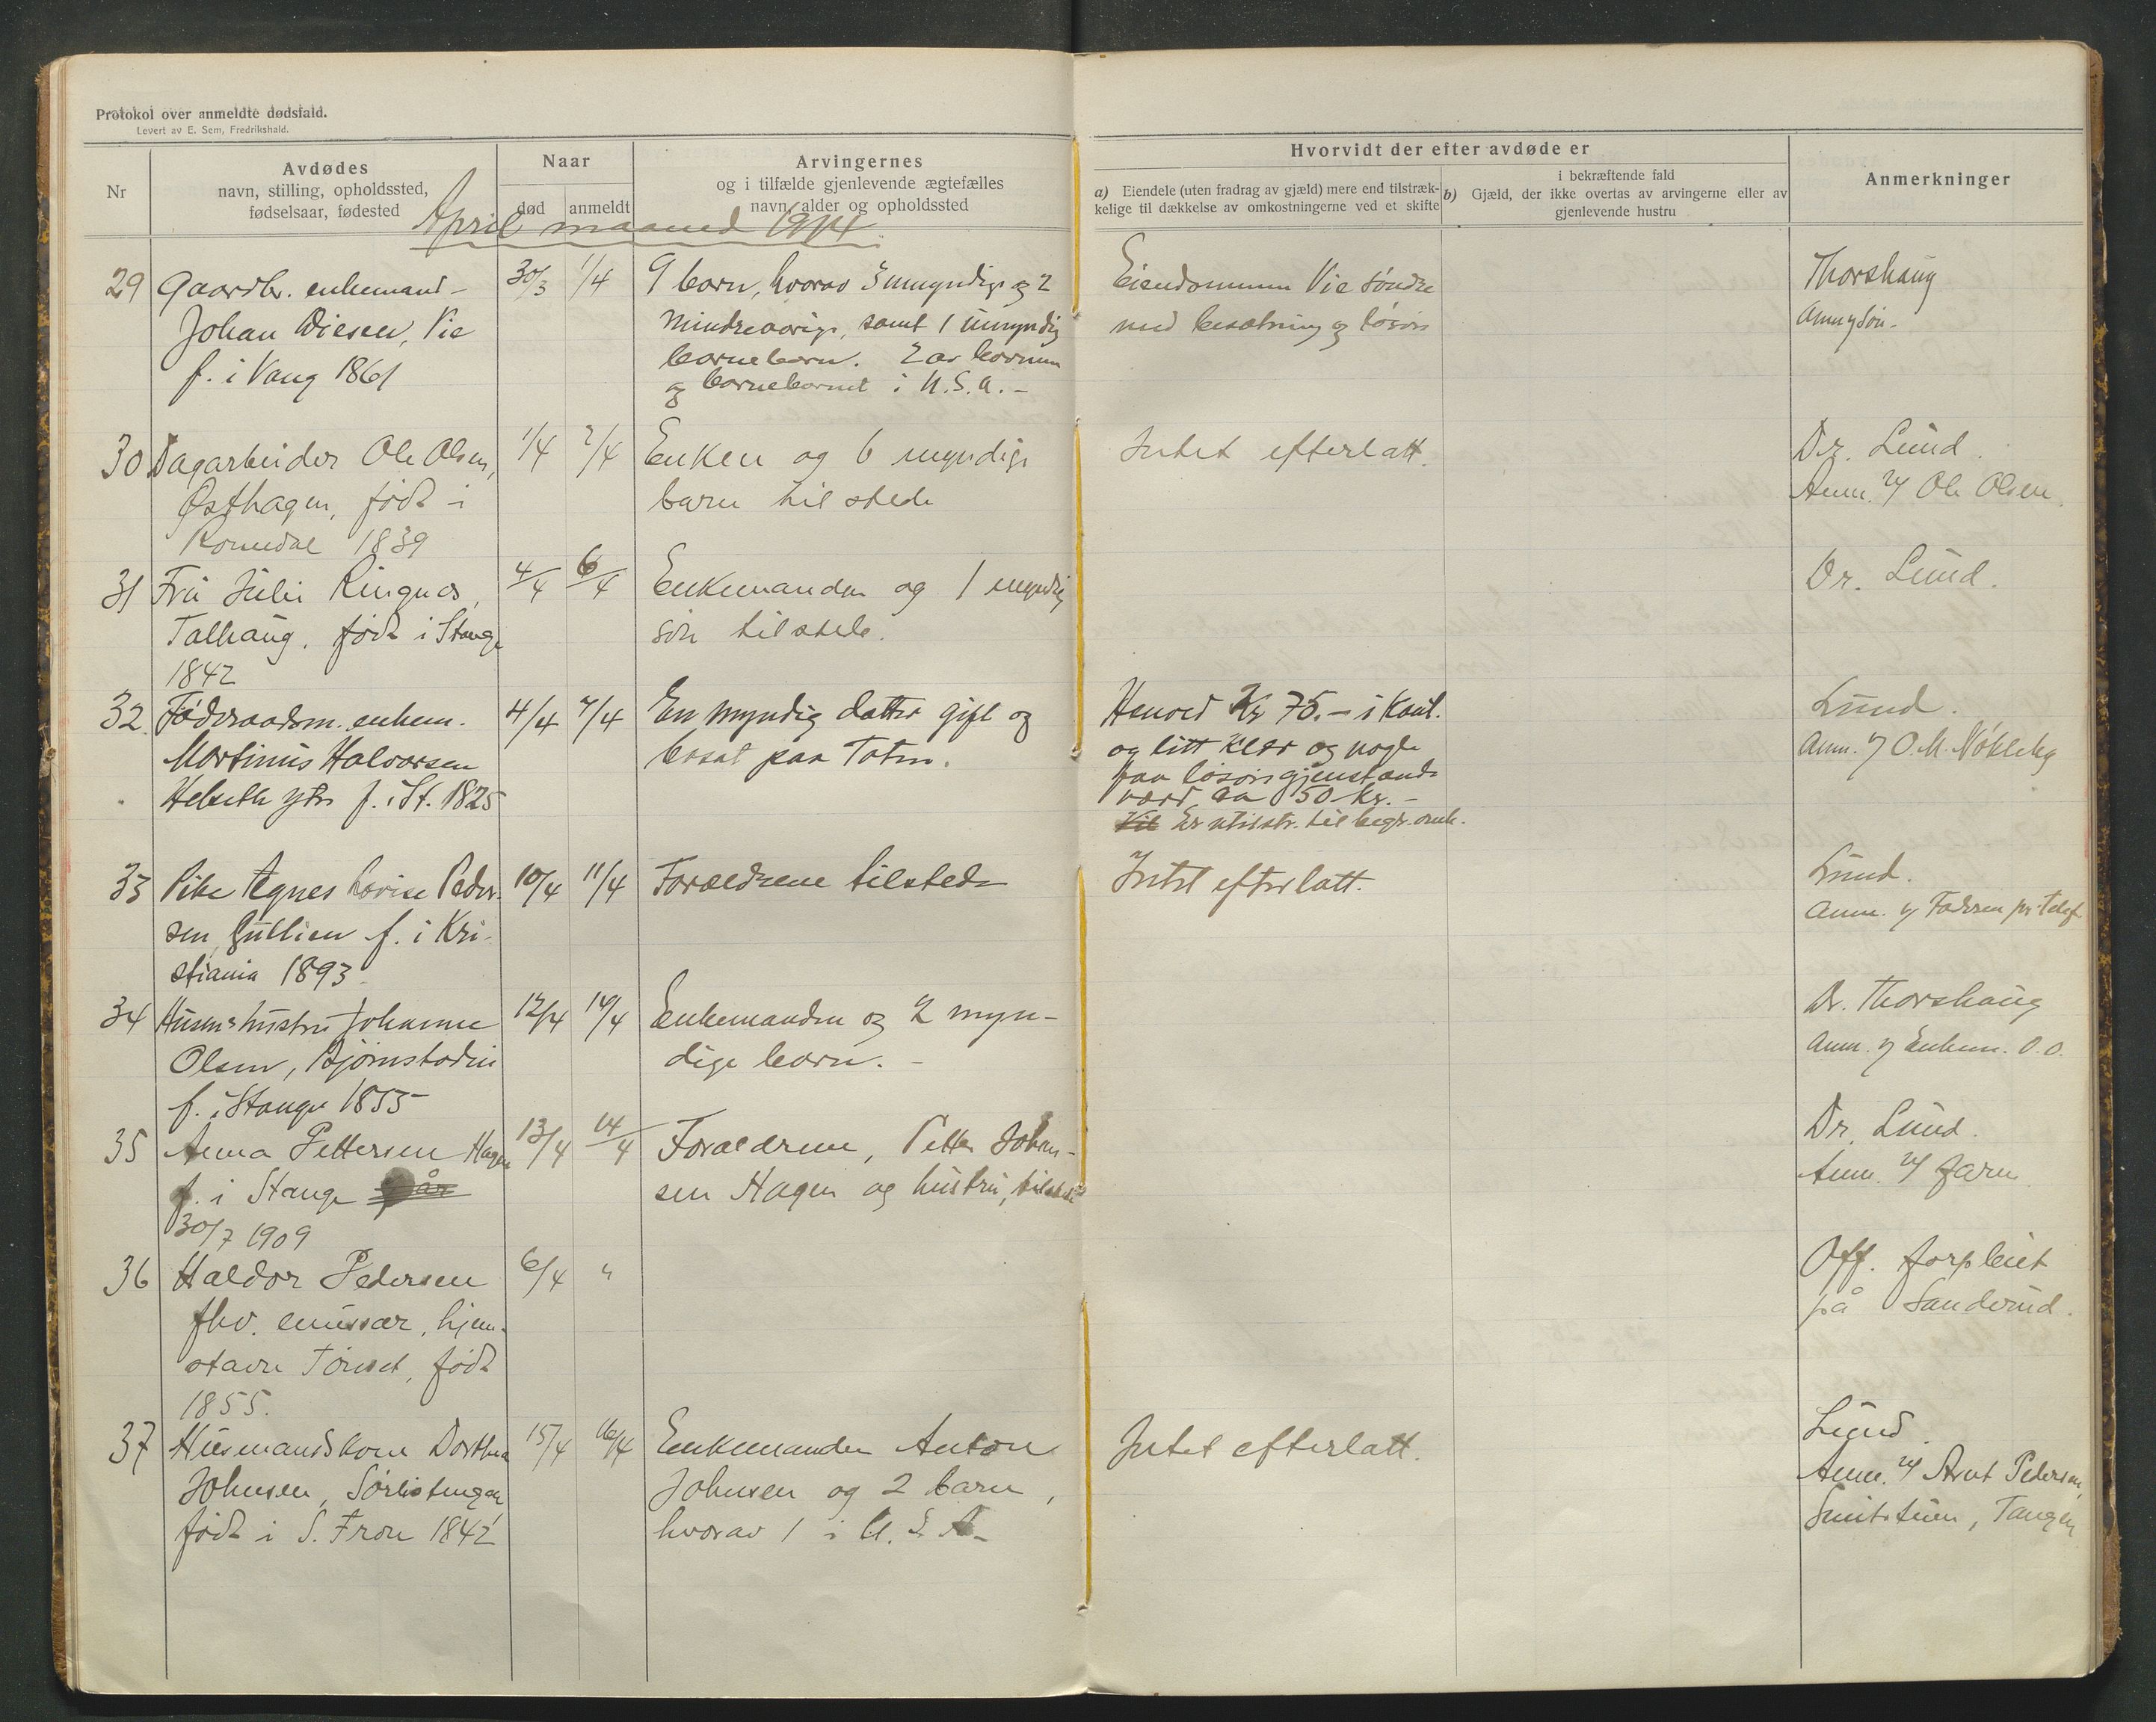 Protokol over anmeldte dødsfald.
Levert av E. Sem, Fredrikshald.
Nr
Avdødes
navn, stilling, opholdssted,
fødselsaar, fødested
Naar
død
anmeldt
Arvingernes
og i tilfælde gjenlevende ægtefælles
navn, alder og opholdssted
Hvorvidt der efter avdøde er
a) Eiendele (uten fradrag av gjæld) mere end tilstræk-
kelige til dækkelse av omkostningerne ved et skifte
i bekræftende fald
b) Gjæld, der ikke overtas av arvingerne eller av
gjenlevende hustru
Anmerkninger
April maaned 1914
29
Gaardbr. enkemand
Johan Wiesen, Vie
f. i Vang 1861
30/3
1/4
9 børn, hvorav umyndige og 2
mindreaarige, samt 1 umyndig
barnebarn. 2 av børnene
og barnebarnet i U.S.A. -
Eiendommen Vie søndre
med besætning og løsøre
Thorshaug
Anm y søn.
30
Dagarbeider Ole Olsen,
Østhagen, født i
Romedal 1839
1/4
2/4
Enken og 6 myndige
barn tilstede
Intet efterlatt.
Dr. Lund.
Anm. y Ole Olsen.
31
Fru Julie Ringnes,
Talhaug, født i Stange
1842
4/4
6/4
Enkemanden og 1 myndig
søn tilstede.
Dr. Lund.
32.
Føderaadsm. enkem.
Martinus Halvorsen
Helseth ytre f. i St. 1825
4/4
7/4
En myndig datter gift og
bosat paa Toten.
Henved Kr 75.- i Kont.
og litt klær og nogle
faa løsøregjenstande
værd ca 50 kr. -
Vil Er utilstr. til begr. omk.
Lund.
Anm. y O. M. Nökleby
33
Pike Agnes Lovise Peder-
sen, Gullien f. i Kri-
stiania 1893.
10/4
11/4
Forældrene tilstede
Intet efterlatt.
Lund.
Anm. y Faderen pr. Telef.
34
Husmshustru Johanne
Olsen, Bjørnstadeie
f. i Stange 1855
12/4
14/4
Enkemanden og 2 myn-
dige børn. -
Dr. Thorshaug
Anm. y Enkem. O.O.
35
Anna Pettersen Hagen
f. i Stange
30/7 1909
13/4
14/4
Forældrene, Petter Johan-
sen Hagen og hustru, tilstede
Dr. Lund.
Anm. y faren
36
Haldor Pedersen
fhv. emissær, hjem-
stavn Tönset, född
1855.
6/4
"
Off. forpleiet
på Sanderud.
37
Husmandskone Dorthea
Johnsen, Sørlistuen
født i S. Fron 1842
15/4
16/4
Enkemanden Anton
Johnsen og 2 barn,
hvorav 1 i U.S.A.
Intet efterlatt.
Lund.
Anm. y Arnt Pedersen,
Tangen